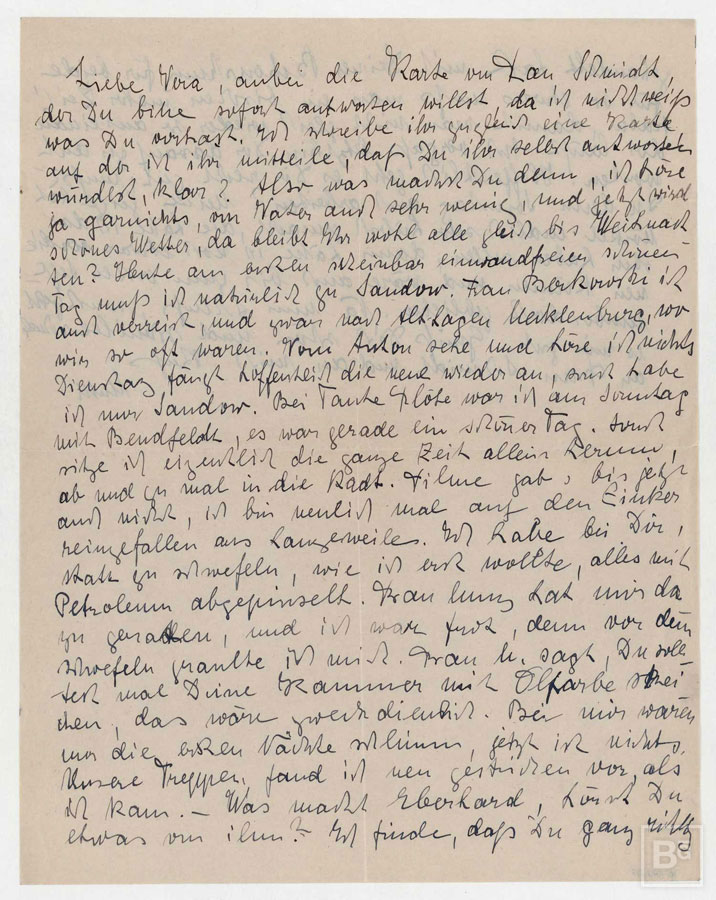 Liebe Vera, anbei die Karte von Dan Schmidt,
der Du bitte sofort antworten willst, da ich nicht weiß
was Du vorhast. Ich schreibe ihr zugleich eine Karte
auf der ich ihr mitteile, daß Du ihr selbst antworten
würdest, klar? Also was machst Du denn, ich höre
ja garnichts, von Vater auch sehr wenig, und jetzt wird
schönes Wetter, da bleibt Ihr wohl alle gleich bis Weihnach
ten? Heute am ersten scheinbar einwandfreien schönen
Tag muß ich natürlich zu Sandow. Frau Borkowski ist
auch verreist, und zwar nach Althagen Mecklenburg, wo
wir so oft waren. Vom Anton sehe und höre ich nichts
Dienstag fängt hoffentlich die neue wieder an, sonst habe
ich nur Sandow. Bei Tante Flöte war ich am Sonntag
mit Bendfeldt, es war gerade ein schöner Tag. Sonst
sitze ich eigentlich die ganze Zeit allein herum,
ab und zu mal in die Stadt. Filme gab's bis jetzt
auch nicht, ich bin neulich mal auf den
reingefallen aus Langerweile. Ich habe bei Dir,
statt zu schwefeln, wie ich erst wollte, alles mit
Petroleum abgepinselt. Frau hat mir da
zu geraten, und ich war froh, denn vor dem
schwefeln graulte ich mich. Frau sagt, Du soll-
test mal Deine Kammer mit Ölfarbe strei
chen, das wäre zweckdienlich. Bei mir waren
nur die ersten Nächte schlimm, jetzt ist nichts.
Unsere Treppen fand ich neu gestrichen vor, als
ich kam. – Was macht Eberhard, hörst Du
etwas von ihm? – Ich finde, daß Du ganz richtig
BG